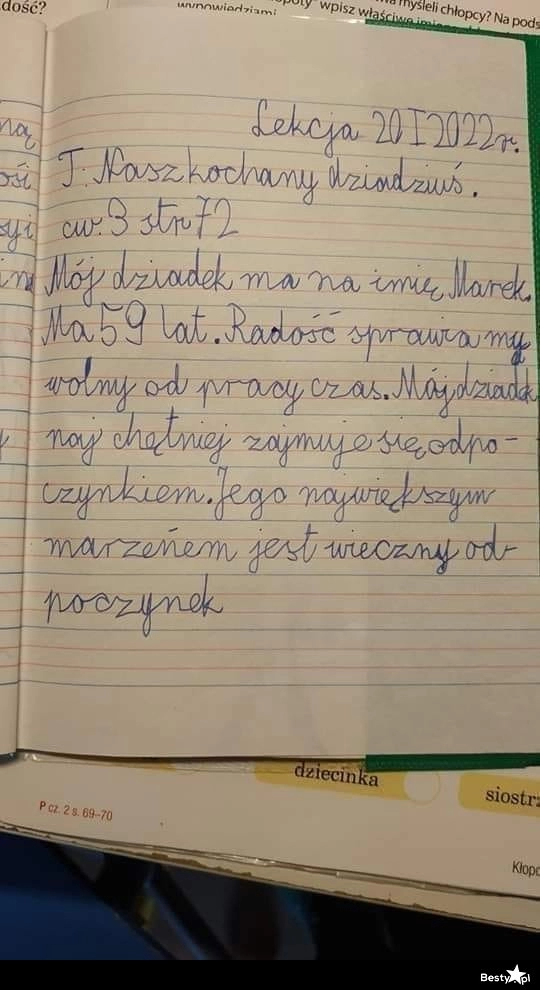 dość?
myśleli chłopcy? Na pods
wpisz właściwe
wypowiedziami
Lekcja 20 I 2022r.
ną
T: Nasz kochany dziadziuś.
ości
ćw. 3 str 72
Mój dziadek ma na imię Marek.
Ma 59 lat. Radość sprawia my
wolny od pracy czas. Mój dziadek
naj chętniej zajmuje się odpo-
czynkiem. Jego największym
marzeńem jest wieczny od-
poczynek
dziecinka
siostrz
P cz. 2 s. 69–70
Kłopo
Besty.pl